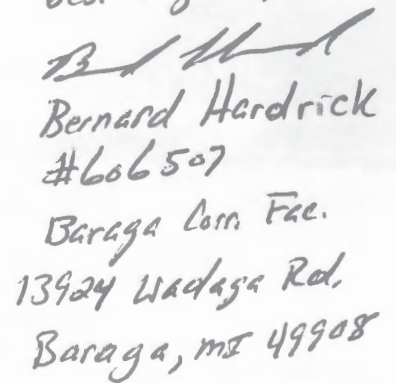 Bernard Hardrick
#606507
Baraga Corr. Fac.
13924 Wadaga Rd.
Baraga, MI 49908